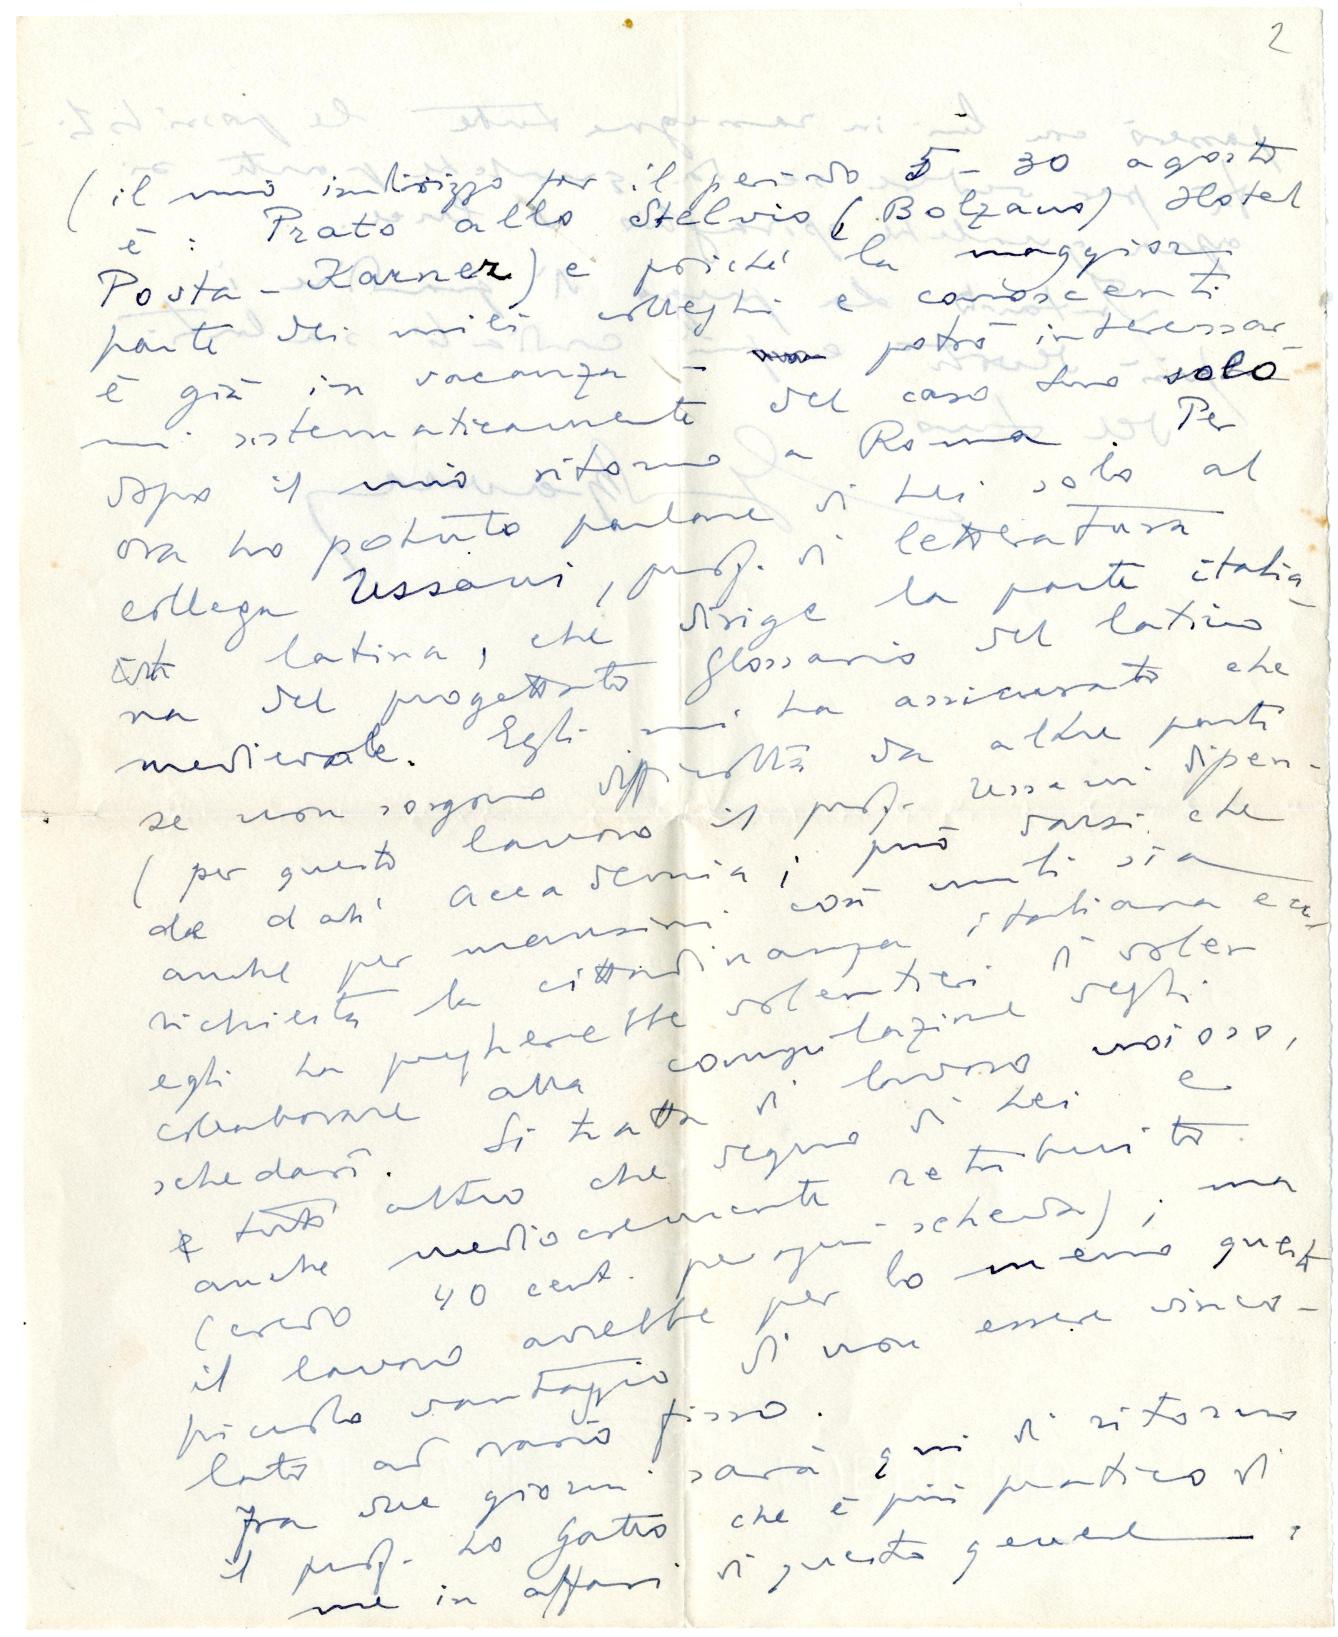 2
(il mio indirizzo per il periodo 5 - 30 agosto
è : Prato allo Stelvio (Bolzano) Hotel
Posta - Karner) e poiché la maggior
parte dei miei colleghi e conoscenti
è già in vacanza - potrò interessar
mi sistematicamente del caso suo solo
dopo il mio ritorno a Roma. Per
ora ho potuto parlare di Lei solo al
collega Ussani, prof. di letteratura
latina, che dirige la parte italia-
na del progettato Glossario del latino
medievale. Egli mi ha assicurato che
se non sorgono difficoltà da altre parti
(per questo lavoro il prof. Ussani dipen-
de dall' Accademia; può darsi che
anche per mansioni così umili sia
richiesta la cittadinanza italiana ecc
egli La pregherebbe volentieri di voler
collaborare alla compilazione degli
schedarî. Si tratta di lavoro noioso,
tutt' altro che degno di Lei e
anche mediocremente retribuito
(credo 40 cent. per ogni scheda); ma
il lavoro avrebbe per lo meno questo
piccolo vantaggio di non essere vinco-
lato ad orario fisso.
Fra due giorni sarà qui di ritorno
il prof. Lo Gatto che è più pratico di
me in affari di questo genere